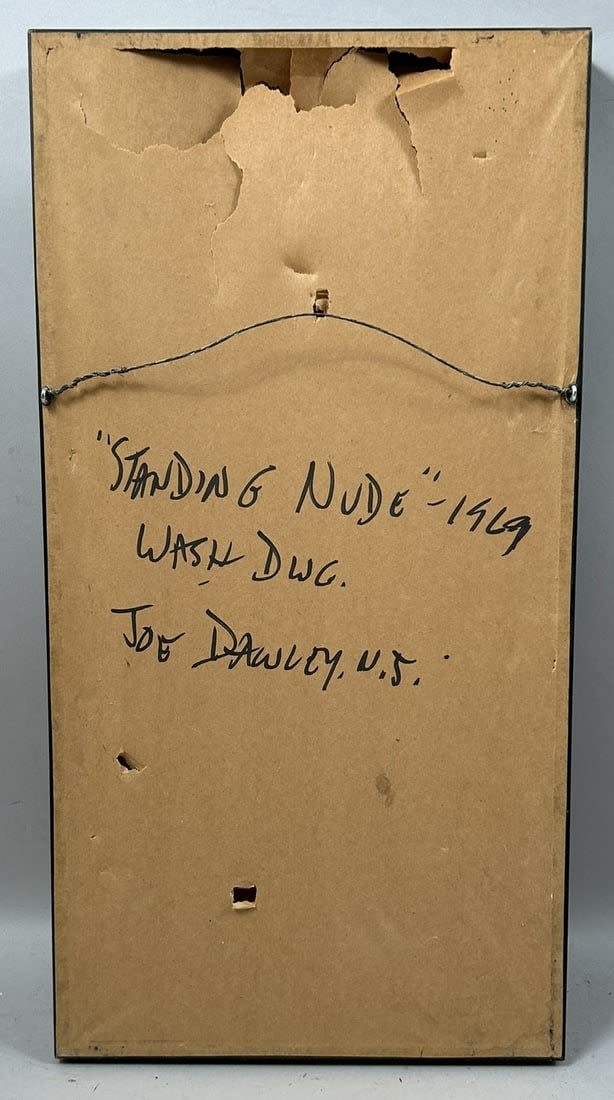 "STANDING NUDE" - 1969
WASH DWG.
JOE DAWLEY. N.J.